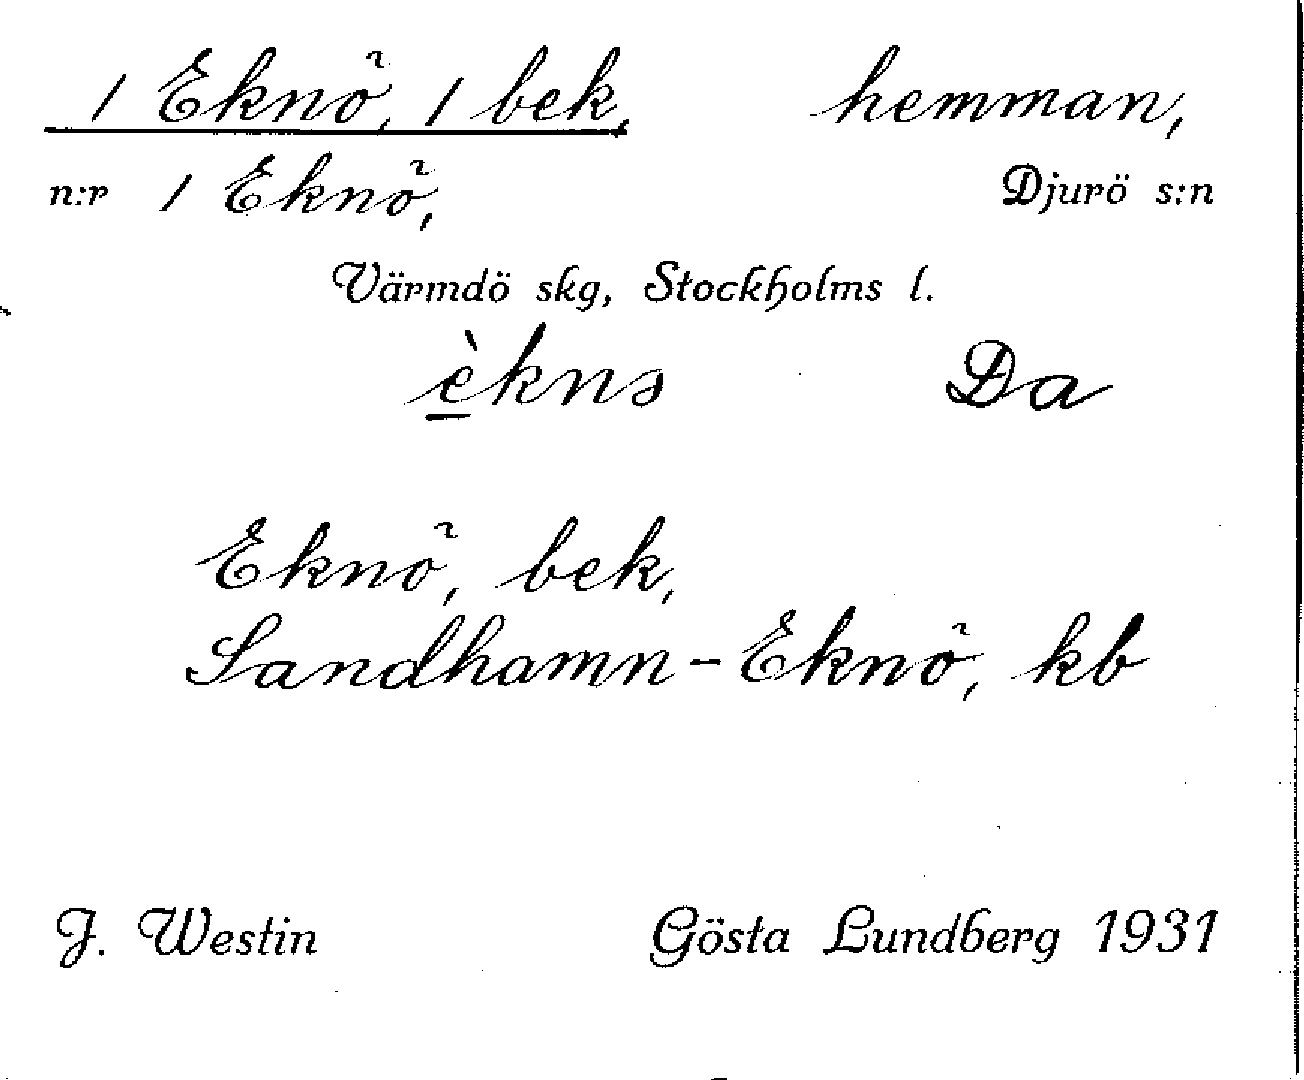 1 Eknö, 1 bek, hemman,
n:r 1 Eknö, Djurö s:n
Värmdö skg, Stockholms l.
è̲knə Da
Eknö, bek,
Sandhamn-Eknö, kb
J. Westin Gösta Lundberg 1931